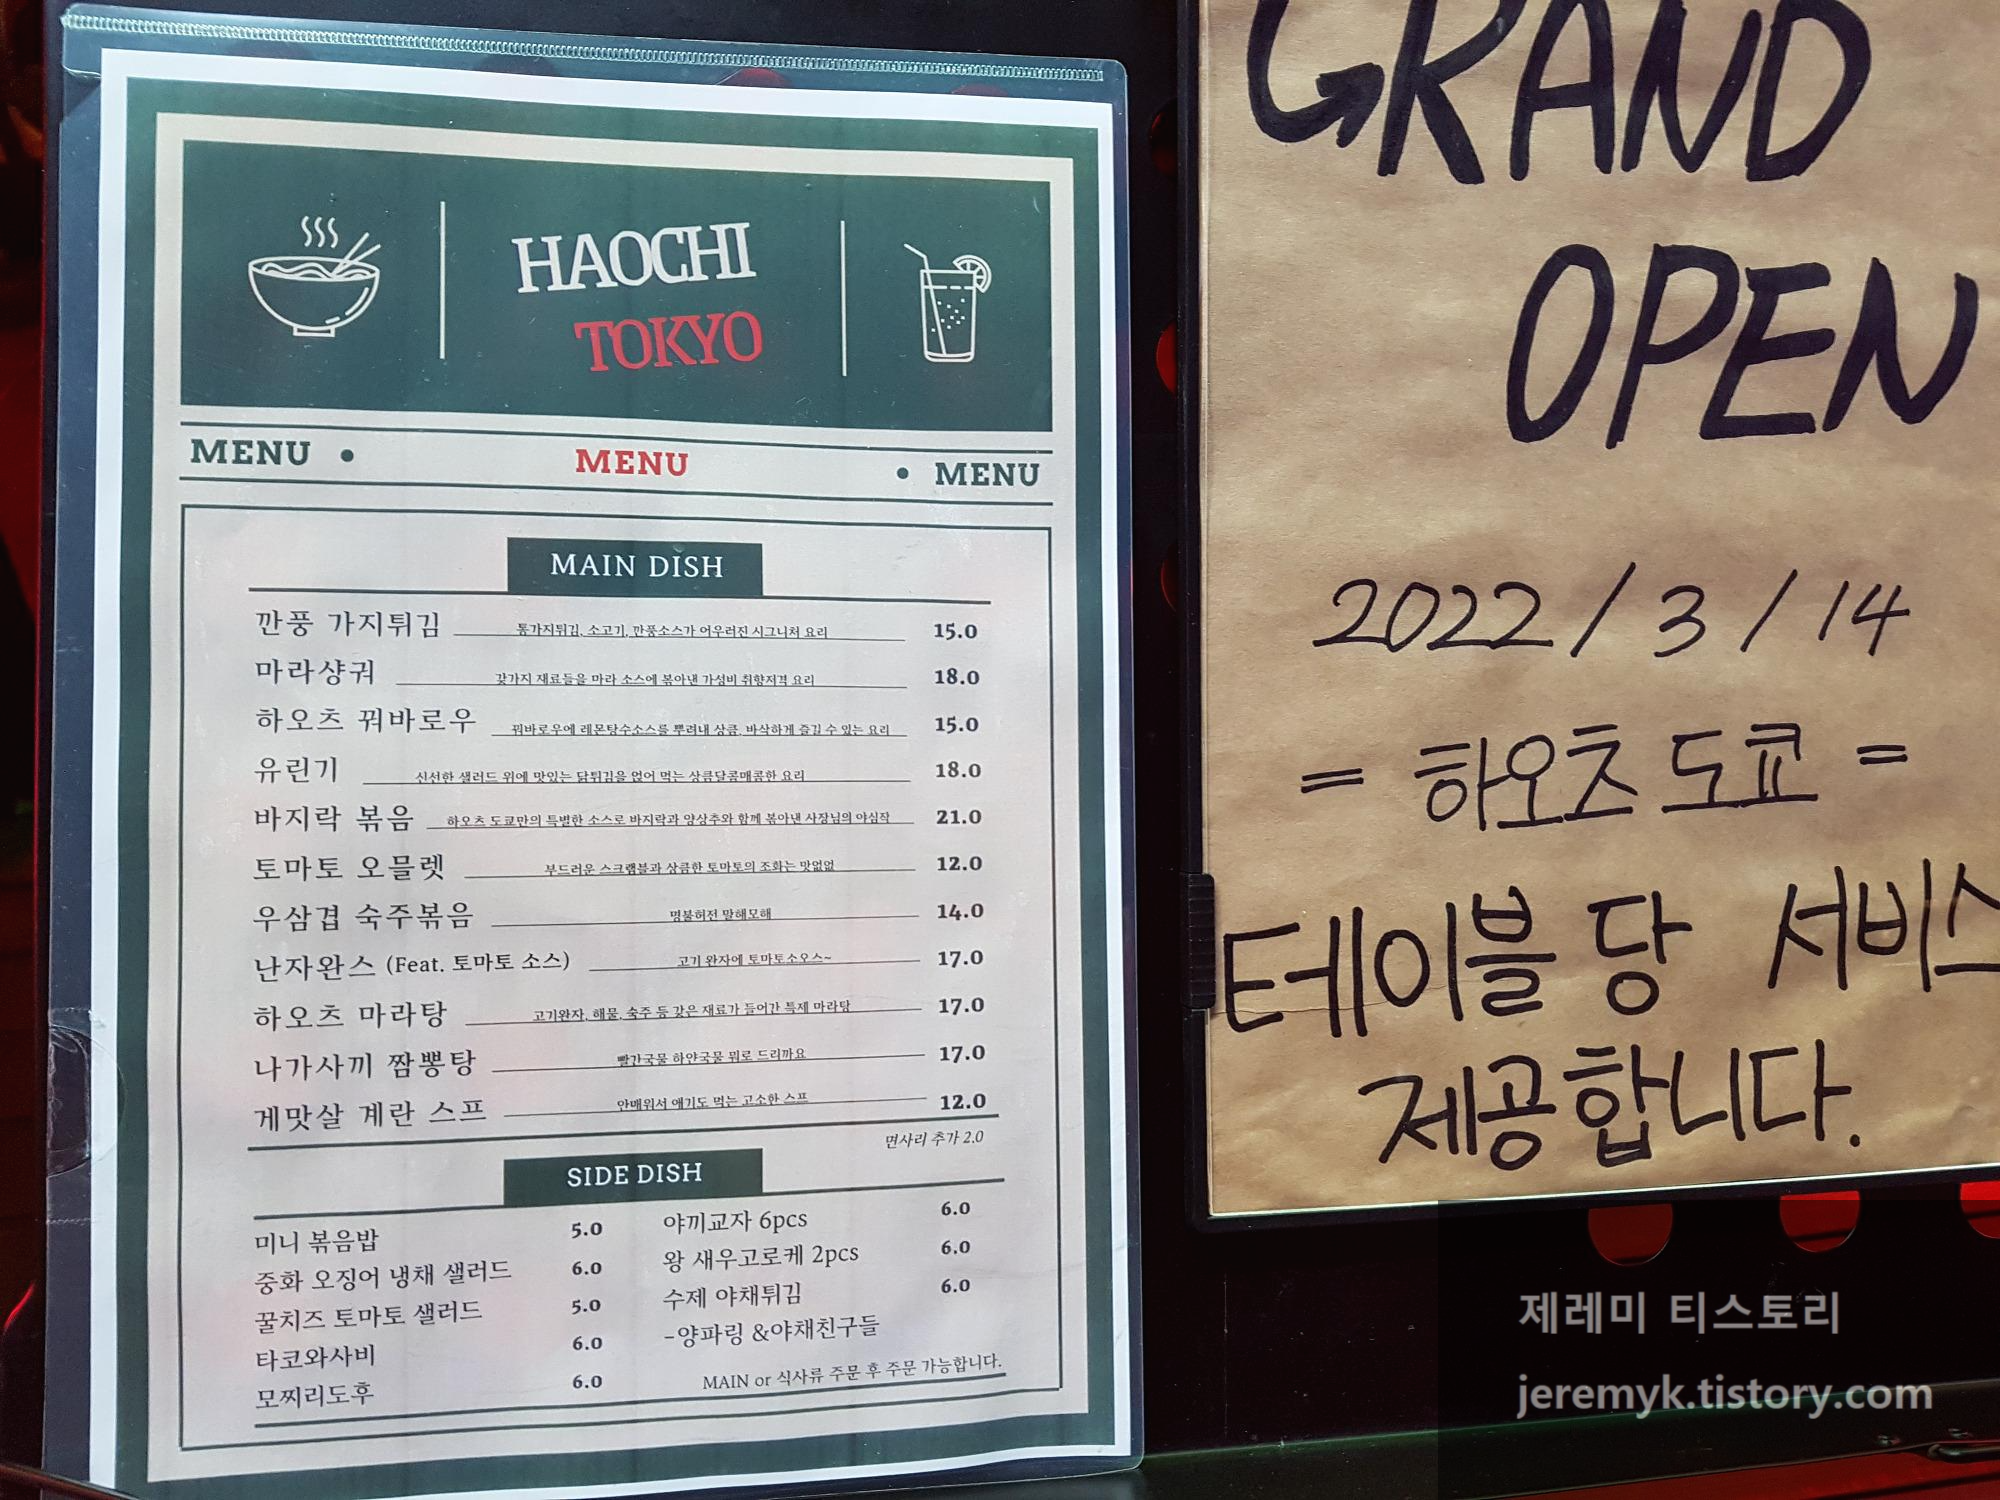 HAOCHI
TOKYO
MENU • MENU • MENU
MAIN DISH
깐풍 가지튀김 통가지튀김, 소고기, 깐풍소스가 어우러진 시그니처 요리 15.0
마라샹궈 갖가지 재료들을 마라 소스에 볶아낸 가성비 취향저격 요리 18.0
하오츠 꿔바로우 꿔바로우에 레몬탕수소스를 뿌려내 상큼, 바삭하게 즐길 수 있는 요리 15.0
유린기 신선한 샐러드 위에 맛있는 닭튀김을 얹어 먹는 상큼달콤매콤한 요리 18.0
바지락 볶음 하오츠 도쿄만의 특별한 소스로 바지락과 양상추와 함께 볶아낸 사장님의 야심작 21.0
토마토 오믈렛 부드러운 스크램블과 상큼한 토마토의 조화는 맛없없 12.0
우삼겹 숙주볶음 명불허전 말해모해 14.0
난자완스 (Feat. 토마토 소스) 고기 완자에 토마토소오스~ 17.0
하오츠 마라탕 고기완자, 해물, 숙주 등 갖은 재료가 들어간 특제 마라탕 17.0
나가사끼 짬뽕탕 빨간국물 하얀국물 뭐로 드리까요 17.0
게맛살 계란 스프 안매워서 애기도 먹는 고소한 스프 12.0
면사리 추가 2.0
SIDE DISH
미니 볶음밥 5.0
중화 오징어 냉채 샐러드 6.0
꿀치즈 토마토 샐러드 5.0
타코와사비 6.0
모찌리도후 6.0
야끼교자 6pcs 6.0
왕 새우고로케 2pcs 6.0
수제 야채튀김 6.0
-양파링 &야채친구들
MAIN or 식사류 주문 후 주문 가능합니다.
GRAND
OPEN
2022 / 3 / 14
= 하오츠 도쿄 =
테이블 당 서비스
제공합니다.
제레미 티스토리
jeremyk.tistory.com